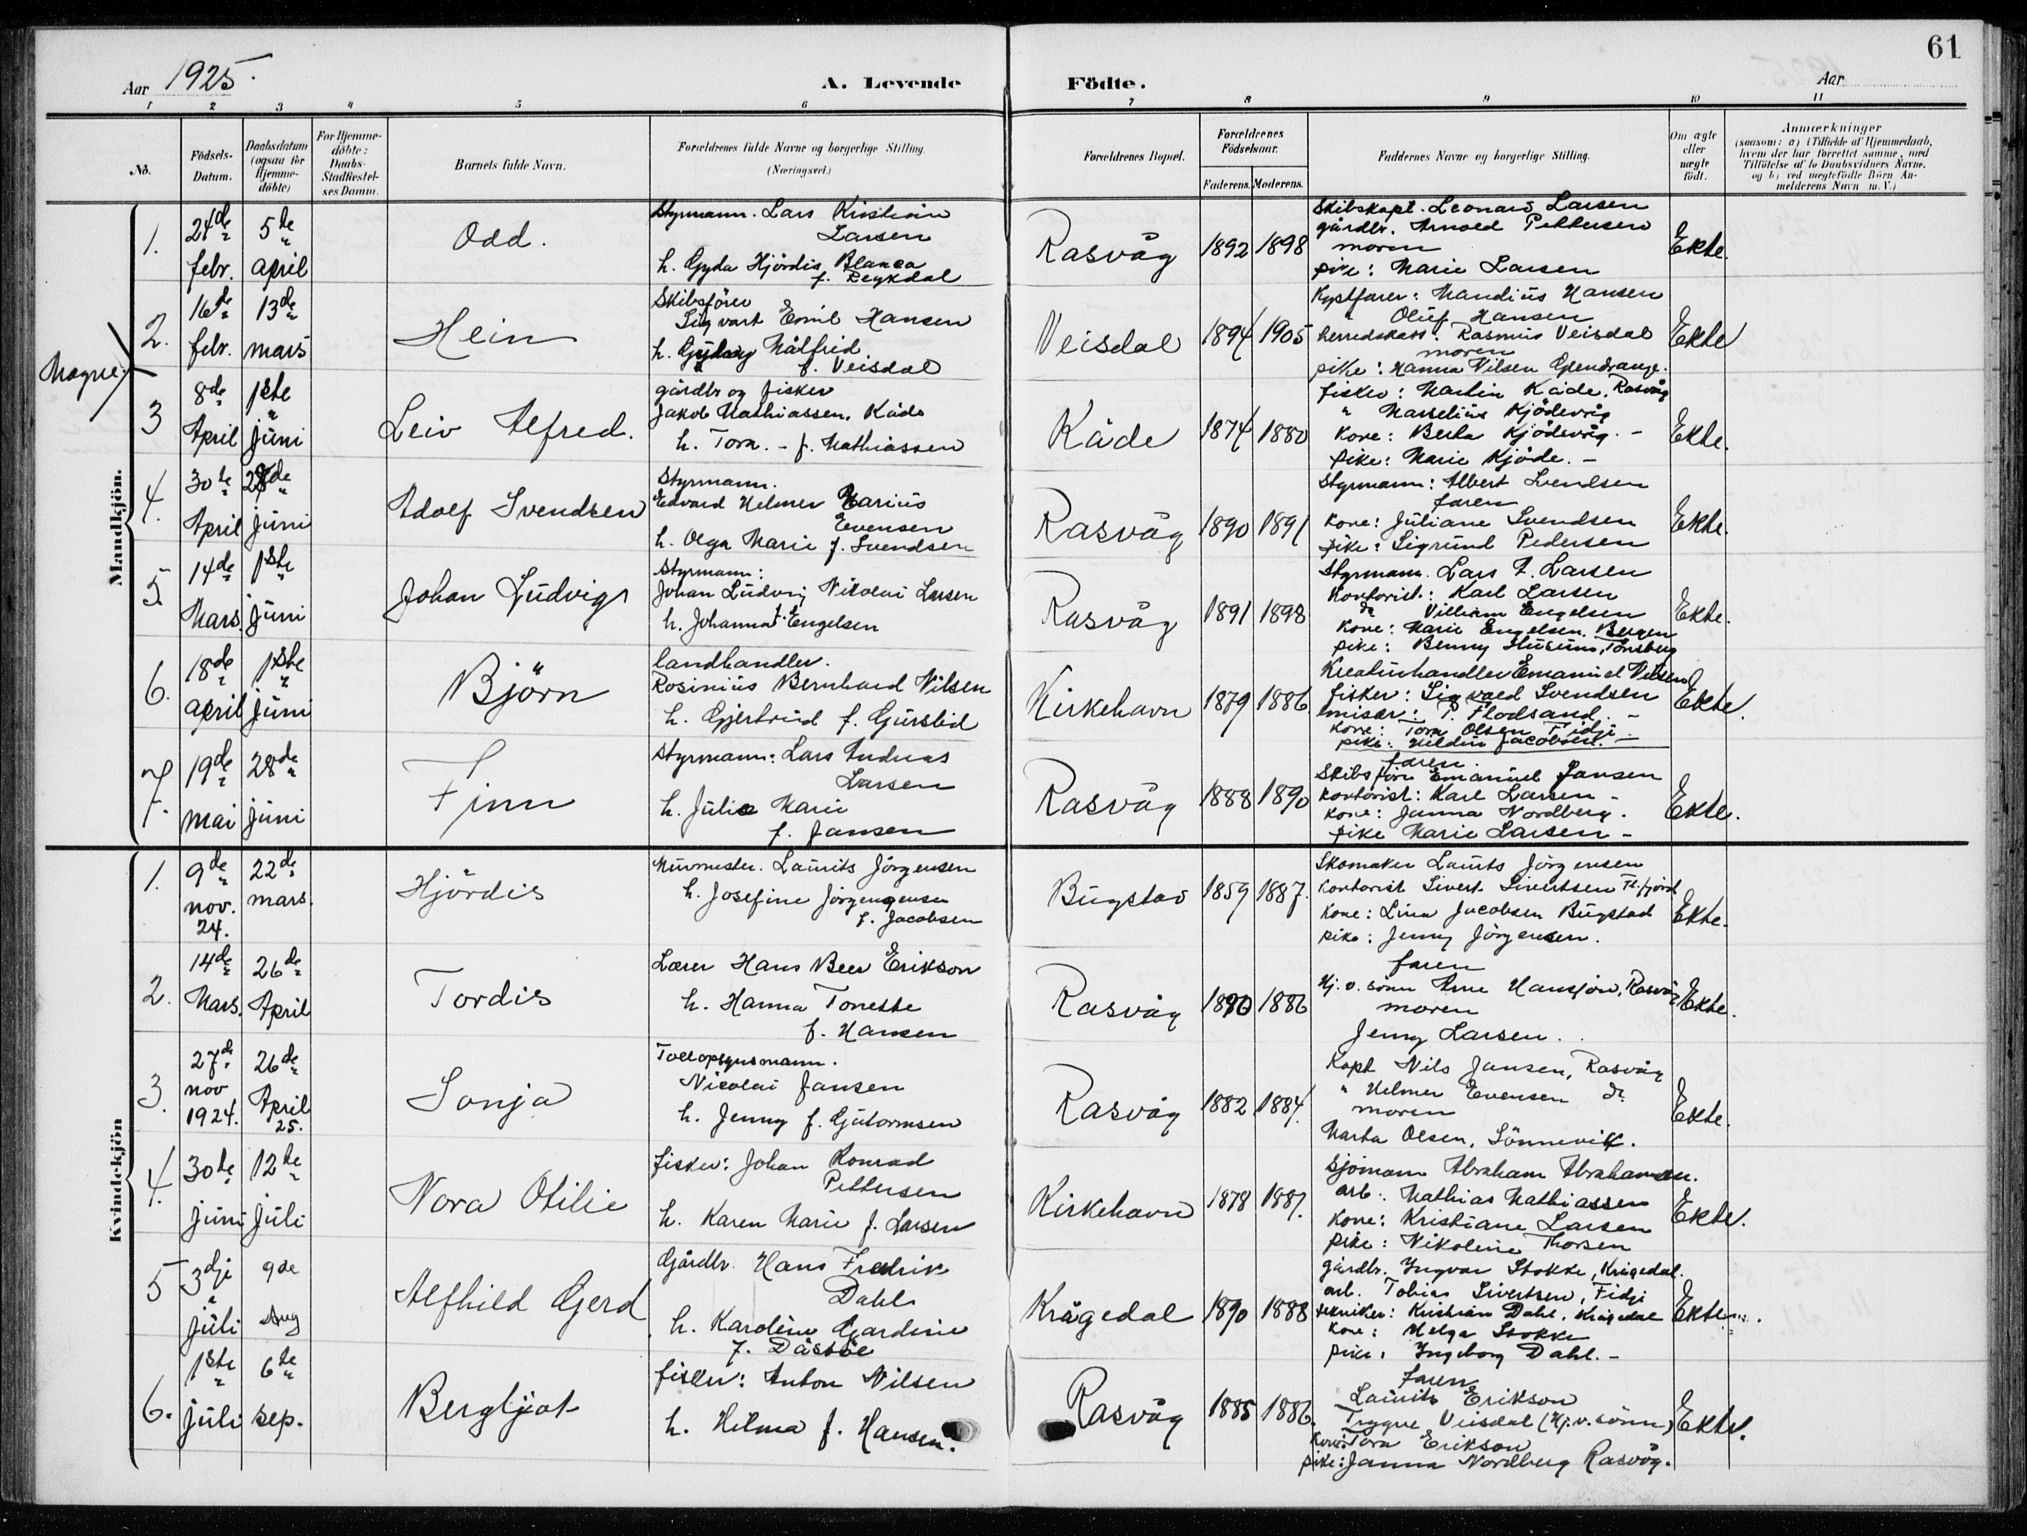 61
Aar 1925.
A. Levende Födte.
Aar
1 2 3 4 5 6 7 8 9 10 11
No.
Födsels-Datum.
Daabsdatum (ogsaa for Hjemme-döbte)
For Hjemme-döbte: Daabs-Stadfæstel-ses Datum.
Barnets fulde Navn.
Forældrenes fulde Navne og borgerlige Stilling. (Næringsvei.)
Forældrenes Bopæl.
Forældrenes Födselsaar.
Faderens. Moderens.
Faddernes Navne og borgerlige Stilling.
Om ægte eller uægte födt.
Anmærkninger
(saasom: a) i Tilfælde af Hjemmedaab, hvem der har forrettet samme, med Tilföielse af to Daabsvidners Navne, og b) ved uægtefödte Börn An-melderens Navn m. V.)
Mandkjön.
1. 24de febr. 5te april
Odd.
Styrmann. Lars Kristian
Larsen
h. Gyda Hjördis Blanca
Rasvåg 1892 1898
Skibskapt. Leonard Larsen
gårdbr. Arnold Pettersen
moren
pike: Marie Larsen
Ekte.
Magne
2. 16de febr. 13de mars
Hein
Skibsförer
Sigvart Emil Hansen
h. Målfrid
f. Veisdal
Veisdal 1894 1905
Kystfarer: Mandius Hansen
" Oluf Hansen
herredskass. Rasmus Veisdal
moren
pike: Hanna Nilsen
Ekte
3 8de April 1ste juni
Leiv Alfred.
gårdbr og fisker
Jakob Mathiassen. Kåde
h. Tora. - f. Mathiassen
Kåde 1874 1880
fisker: Martin Kåde, Rasvåg
" Marselius Kjödevåg
Kone: Berta Kjödevåg. -
pike: Marie Kjöde. -
Ekte.
4. 30te April 28de juni
Adolf Svendsen
Styrmann.
Edvard Helmer Marius
Evensen
h. Olga Marie f. Svendsen
Rasvåg 1890 1891
Styrmann: Albert Svendsen
faren
Kone: Juliane Svendsen
pike: Sigrund Pedersen
Ekte.
5. 14de Mars. 1ste juni
Johan Ludvig
Styrmann:
Johan Ludvig Nikolai Larsen
h. Johanna f. Engelsen
Rasvåg 1891 1898
Styrmann. Lars A. Larsen
Kontorist: Karl Larsen
do Villiam Engelsen
Kone: Marie Engelsen. Bergen
pike: Benny Husum, Tönsberg
Ekte.
6. 18de april 1ste juni
Björn
landhandler.
Rosinius Bernhard Nilsen
h. Gjertrud f. Gurslid
Kirkehavn 1879 1886
Kreaturhandler Emanuel Nilsen
fisker: Sigvald Svendsen
T. Flodsand. -
Kone: Tora Olsen Fidji
pike: Jacobsen. -
Ekte.
7. 19de mai 28de juni
Finn
Styrmann: Lars Andreas
Larsen
h. Julie Marie
f. Jansen
Rasvåg 1888 1890
faren.
Skibsförer Emanuel Jansen
Kontorist: Karl Larsen -
Kone: Janna Nordberg.
pike Marie Larsen -
Ekte.
Kvindekjön
1. 9de nov. 24. 22de mars.
Hjördis
Murmester. Laurits Jörgensen
h. Josefine Jörgengensen
f. Jacobsen
Bugstad 1859 1887.
Skomaker Laurits Jörgensen
Kontorist Sivert Sivertsen
Kone: Lina Jacobsen Bugstad
pike: Jenny Jörgensen.
Ekte.
2. 14de Mars. 26de April
Tordis
Lærer Hans Beer Erikson
h. Hanna Tonette
f. Hansen
Rasvåg 1886
faren
Hj. v. sönn Arne Hansson, Rasvåg
moren
Jenny Larsen.
Ekte.
3. 27de nov 1924. 26de April 25.
Sonja
Tollopsynsmann.
Nicolai Jansen
h. Jenny f. Gutormsen
Rasvåg 1882 1884.
Kapt Nils Jansen, Rasvåg
" Helmer Evensen do
moren
Marta Olsen, Sönnevik.
Ekte.
4. 30te juni 12te juli
Nora Otilie
fisker: Johan Konrad
Pettersen
h. Karen Marie f. Larsen
Kirkehavn 1878 1887.
Sjömann Abraham Abrahamsen.
arb. Mathias Mathiassen
Kone: Kristiane Larsen
pike: Nikoline Thorsen
Ekte.
5 3dje juli 9de Aug
Alfhild Gjerd
Gårdbr. Hans Fredrik
Dahl.
h. Karoline Gjardine
Krågedal 1890 1888
gårdbr. Yngvar Stokke, Krågedal.
arb. Tobias Sivertsen, Fidji
tekniker: Kristian Dahl. Krågedal
Kone: Helga Stokke
pike: Ingeborg Dahl. -
Ekte
6. 1ste juli 6te sep.
Bergljot
fisker: Anton Nilsen
h. Hilma f. Hansen.
Rasvåg 1885 1886.
faren
Laurits Erikson
Trygve Veisdal (Hj.v. sönn)
Kone: Tora Erikson
pike: Janna Nordberg Rasvåg.
Ekte.